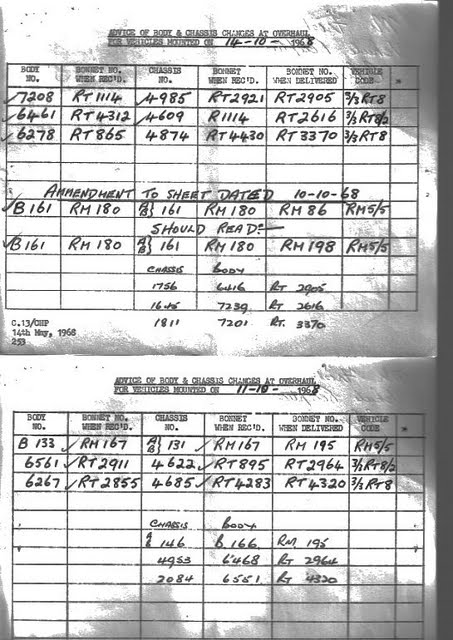 ADVICE OF BODY & CHASSIS CHANGES AT OVERHAUL
FOR VEHICLES MOUNTED ON 14-10- 1968
BODY NO. BONNET NO. WHEN REC'D. CHASSIS NO. BONNET WHEN REC'D. BONNET NO. WHEN DELIVERED VEHICLE CODE
✓7208 RT 1114 ✓4985 RT2921 RT2905 3/3RT8
✓6461 RT4312 ✓4609 R1114 RT2616 3/3RT8/2
✓6278 RT865 4874 RT4430 RT3370 3/3RT8
AMMENDMENT TO SHEET DATED 10-10-68
✓B161 RM180 A/B} 161 RM180 RM86 RM5/5
SHOULD READ:-
✓B161 RM180 A/B} 161 RM180 RM198 RM5/5
CHASSIS BODY
1756 6416 RT 2905
1645 7239 RT 2616
1811 7201 RT. 3370
C.13/CHP
14th May, 1968
253
ADVICE OF BODY & CHASSIS CHANGES AT OVERHAUL
FOR VEHICLES MOUNTED ON 11-10- 1968
BODY NO. BONNET NO. WHEN REC'D. CHASSIS NO. BONNET WHEN REC'D. BONNET NO. WHEN DELIVERED VEHICLE CODE
B 133 ✓RM167 A/B} 131 ✓RM167 RM 195 RM5/5
6561 ✓RT2911 4622 ✓RT895 RT2964 3/3RT8/2
6267 ✓RT2855 4685 ✓RT4283 RT4320 3/3RT8
CHASSIS BODY
A/B 146 B.166 RM. 195
4953 6468 RT 2964
2084 6551 RT 4320